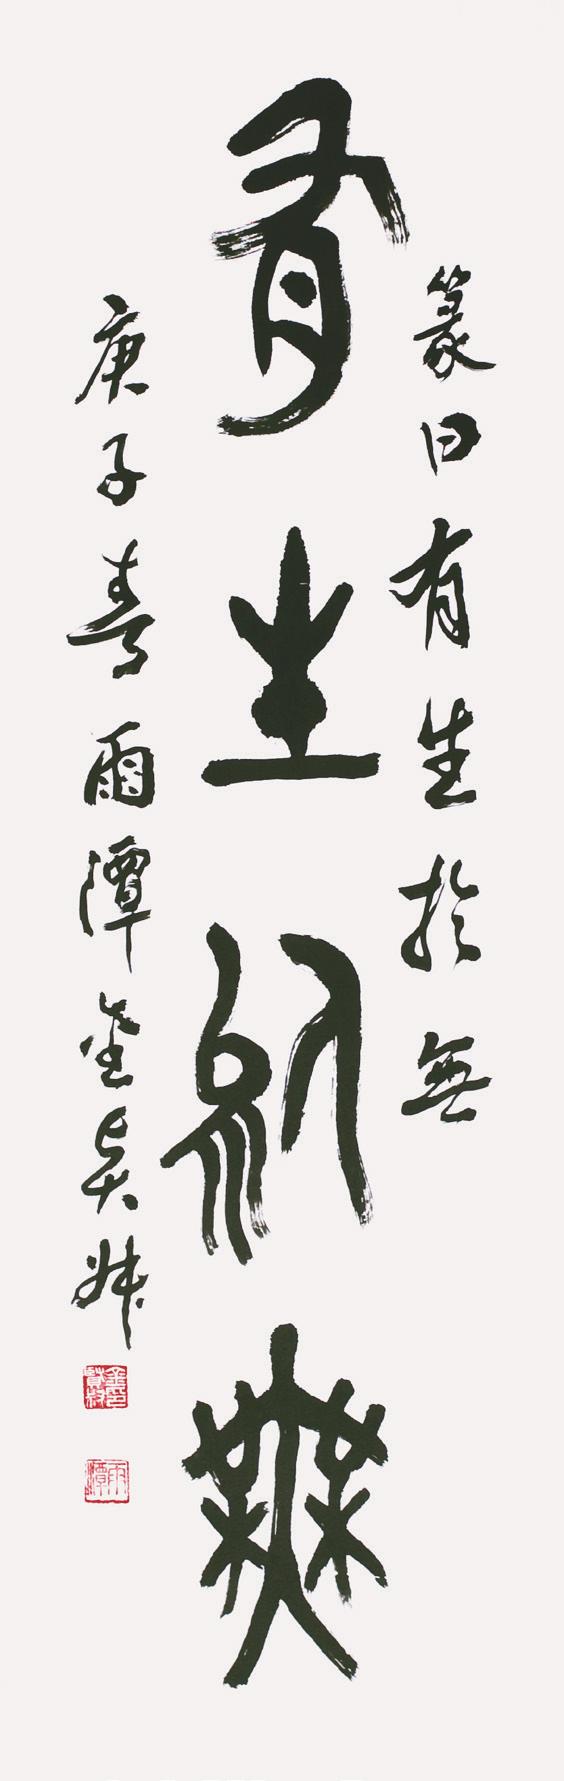 篆曰有生於無
有生於無
庚子春雨潭金賢淑
雨潭